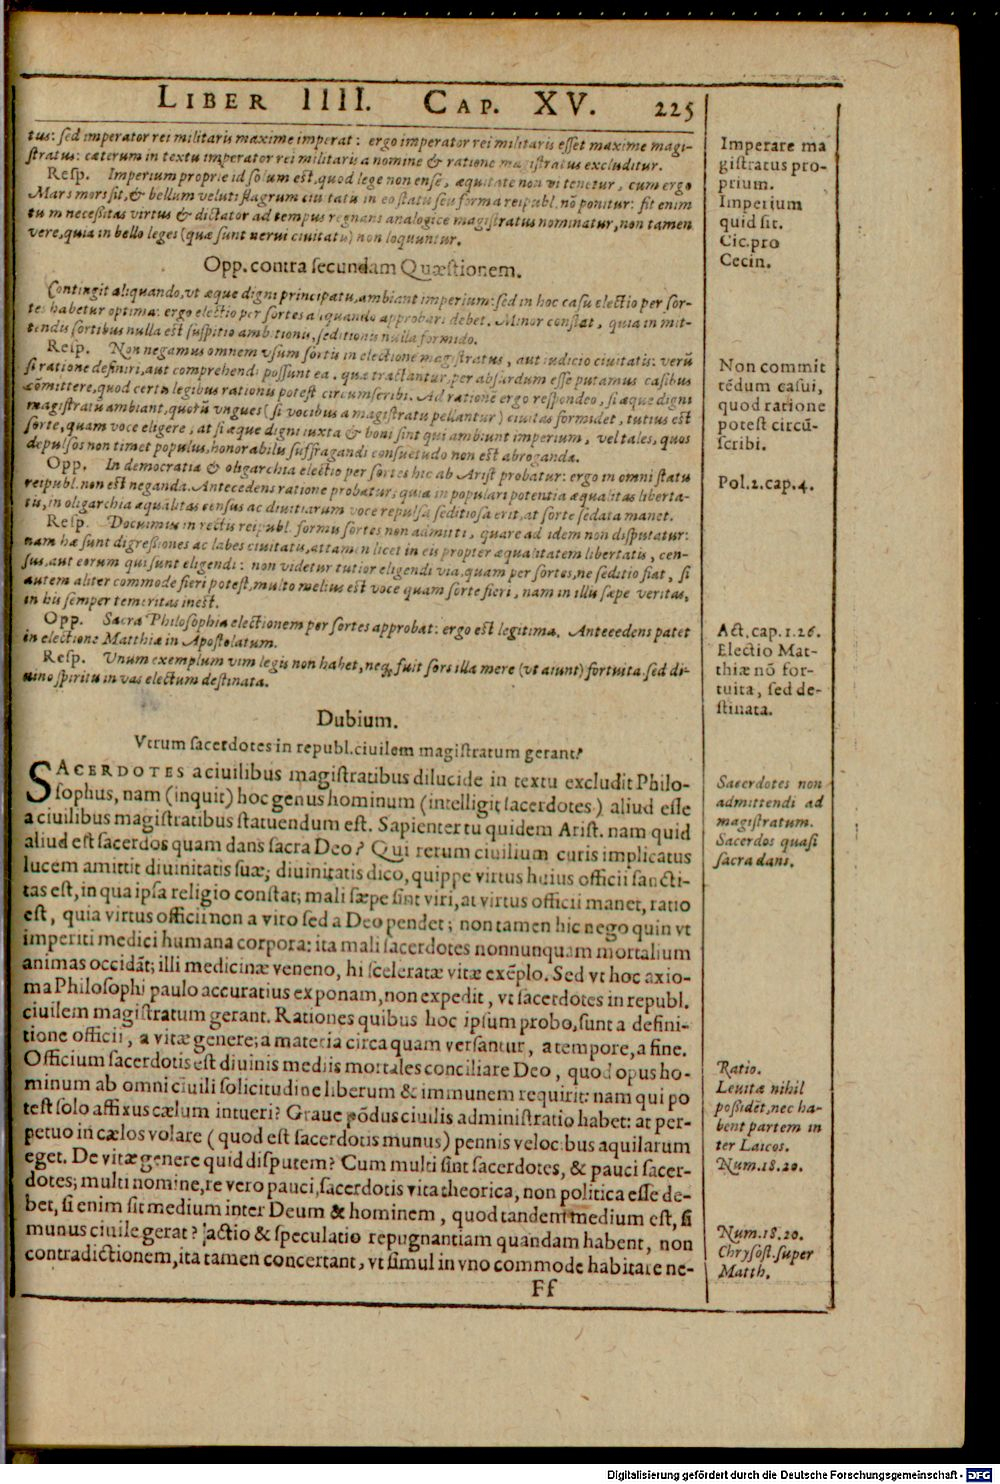 LIBER IIII. CAP. XV. 225
tus: sed imperator rei militaris maxime imperat: ergo imperator rei militaris esset maxime magi-
stratus: cæterum in textu imperator rei militaris a nomine & ratione magistratus excluditur.
Resp. Imperium proprie id solum est, quod lege non ense, æquitate non vi tenetur, cum ergo
Mars mors sit, & bellum veluti flagrum ciuitatis in eo statu seu forma reipubl. nō ponitur: fit enim
tum necessitas virtus & dictator ad tempus regnans analogice magistratus nominatur, non tamen
vere, quia in bello leges (quæ sunt nerui ciuitatis) non loquuntur.
Opp. contra secundam Quæstionem.
Contingit aliquando, vt æque digni principatu, ambiant imperium: sed in hoc casu electio per sor-
tes habetur optima: ergo electio per sortes aliquando approbari debet. Minor constat, quia in mit-
tendis sortibus nulla est suspitio ambitionis, seditionis nulla formido.
Resp. Non negamus omnem vsum sortis in electione magistratus, aut iudicio ciuitatis: verū
si ratione definiri, aut comprehendi possunt ea, quæ tractantur, per absurdum esse putamus casibus
cōmittere, quod certis legibus rationis potest circumscribi. Ad rationē ergo respondeo, si æque digni
magistratū ambiant, quorū vngues (si vocibus a magistratu pellantur) ciuitas formidet, tutius est
sorte, quam voce eligere, at si æque digni iuxta & boni sint qui ambiunt imperium, vel tales, quos
depulsos non timet populus, honorabilis suffragandi consuetudo non est abroganda.
Opp. In democratia & oligarchia electio per sortes hic ab Arist probatur: ergo in omni statu
reipubl. non est neganda. Antecedens ratione probatur, quia in populari potentia æqualitas liberta-
tis, in oligarchia æqualitas census ac diuitiarum voce repulsa seditiosa erit, at sorte sedata manet.
Resp. Docuimus in rectis reipubl. formis sortes non admitti, quare ad idem non disputatur:
nam hæ sunt digressiones ac labes ciuitatis, attamen licet in eis propter æqualitatem libertatis, cen-
sus, aut eorum qui sunt eligendi: non videtur tutior eligendi via, quam per sortes, ne seditio fiat, si
autem aliter commode fieri potest, multo melius est voce quam sorte fieri, nam in illis sæpe veritas,
in his semper temeritas inest.
Opp. Sacra Philosophia electionem per sortes approbat: ergo est legitima. Antecedens patet
in electione Matthiæ in Apostolatum.
Resp. Unum exemplum vim legis non habet, neq; fuit sors illa mere (vt aiunt) fortuita, sed di-
uino spiritu in vas electum destinata.
Dubium.
Vtrum sacerdotes in republ. ciuilem magistratum gerant?
SACERDOTES a ciuilibus magistratibus dilucide in textu excludit Philo-
sophus, nam (inquit) hoc genus hominum (intelligit sacerdotes) aliud esse
a ciuilibus magistratibus statuendum est. Sapienter tu quidem Arist. nam quid
aliud est sacerdos quam dans sacra Deo? Qui rerum ciuilium curis implicatus
lucem amittit diuinitatis suæ; diuinitatis dico, quippe virtus huius officii sancti-
tas est, in qua ipsa religio constat; mali sæpe sint viri, at virtus officii manet, ratio
est, quia virtus officii non a viro sed a Deo pendet; non tamen hic nego quin vt
imperiti medici humana corpora: ita mali sacerdotes nonnunquam mortalium
animas occidāt; illi medicinæ veneno, hi sceleratæ vitæ exēplo. Sed vt hoc axio-
ma Philosophi paulo accuratius exponam, non expedit, vt sacerdotes in republ.
ciuilem magistratum gerant. Rationes quibus hoc ipsum probo, sunt a defini-
tione officii, a vitæ genere; a materia circa quam versantur, a tempore, a fine.
Officium sacerdotis est diuinis mediis mortales conciliare Deo, quod opus ho-
minum ab omni ciuili solicitudine liberum & immunem requirit: nam qui po
test solo affixus cælum intueri? Graue pōdus ciuilis administratio habet: at per-
petuo in cælos volare (quod est sacerdotis munus) pennis velocibus aquilarum
eget. De vitæ genere quid disputem? Cum multi sint sacerdotes, & pauci sacer-
dotes; multi nomine, re vero pauci, sacerdotis vita theorica, non politica esse de-
bet, si enim sit medium inter Deum & hominem, quod tandem medium est, si
munus ciuile gerat? actio & speculatio repugnantiam quandam habent, non
contradictionem, ita tamen concertant, vt simul in vno commode habitare ne-
Ff
Imperare ma
gistratus pro-
prium.
Imperium
quid sit.
Cic. pro
Cecin.
Non commit
tēdum casui,
quod ratione
potest circū-
scribi.
Pol. 2. cap. 4.
Act. cap. 1. 26.
Electio Mat-
thiæ nō for-
tuita, sed de-
stinata.
Sacerdotes non
admittendi ad
magistratum.
Sacerdos quasi
sacra dans.
Ratio.
Leuitæ nihil
possidēt, nec ha-
bent partem in
ter Laicos.
Num. 18. 20.
Num. 18. 20.
Chrysost. super
Matth.
Digitalisierung gefördert durch die Deutsche Forschungsgemeinschaft - DFG